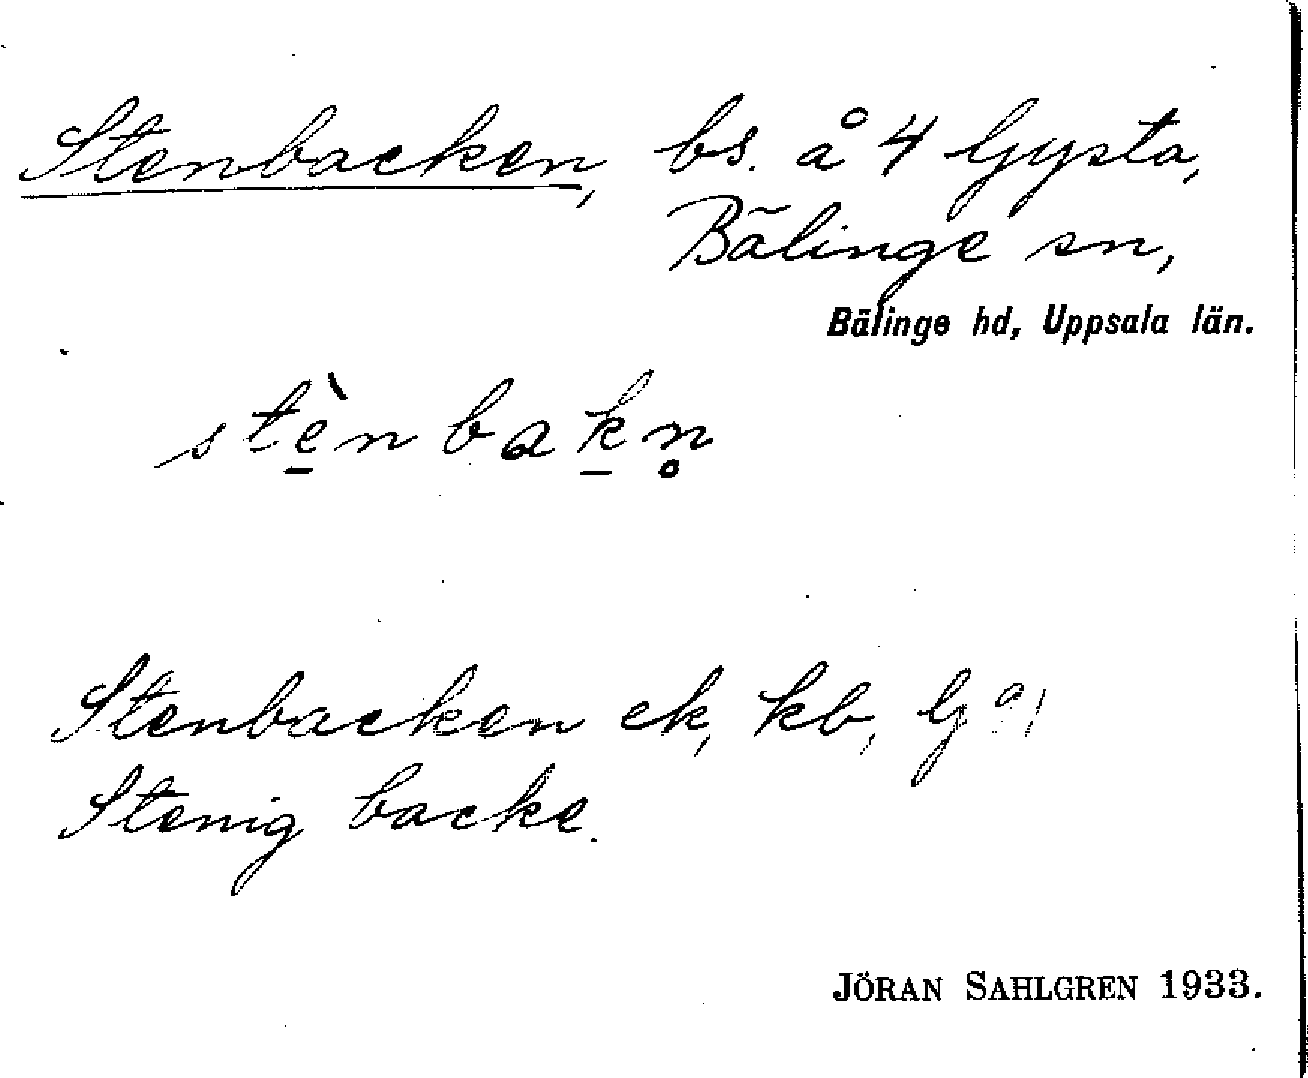 Stenbacken, bs. å 4 Gysta,
Bälinge sn,
Bälinge hd, Uppsala län.
stè̠nbak̠n̥
Stenbacken ek, kb,
Stenig backe.
JÖRAN SAHLGREN 1933.